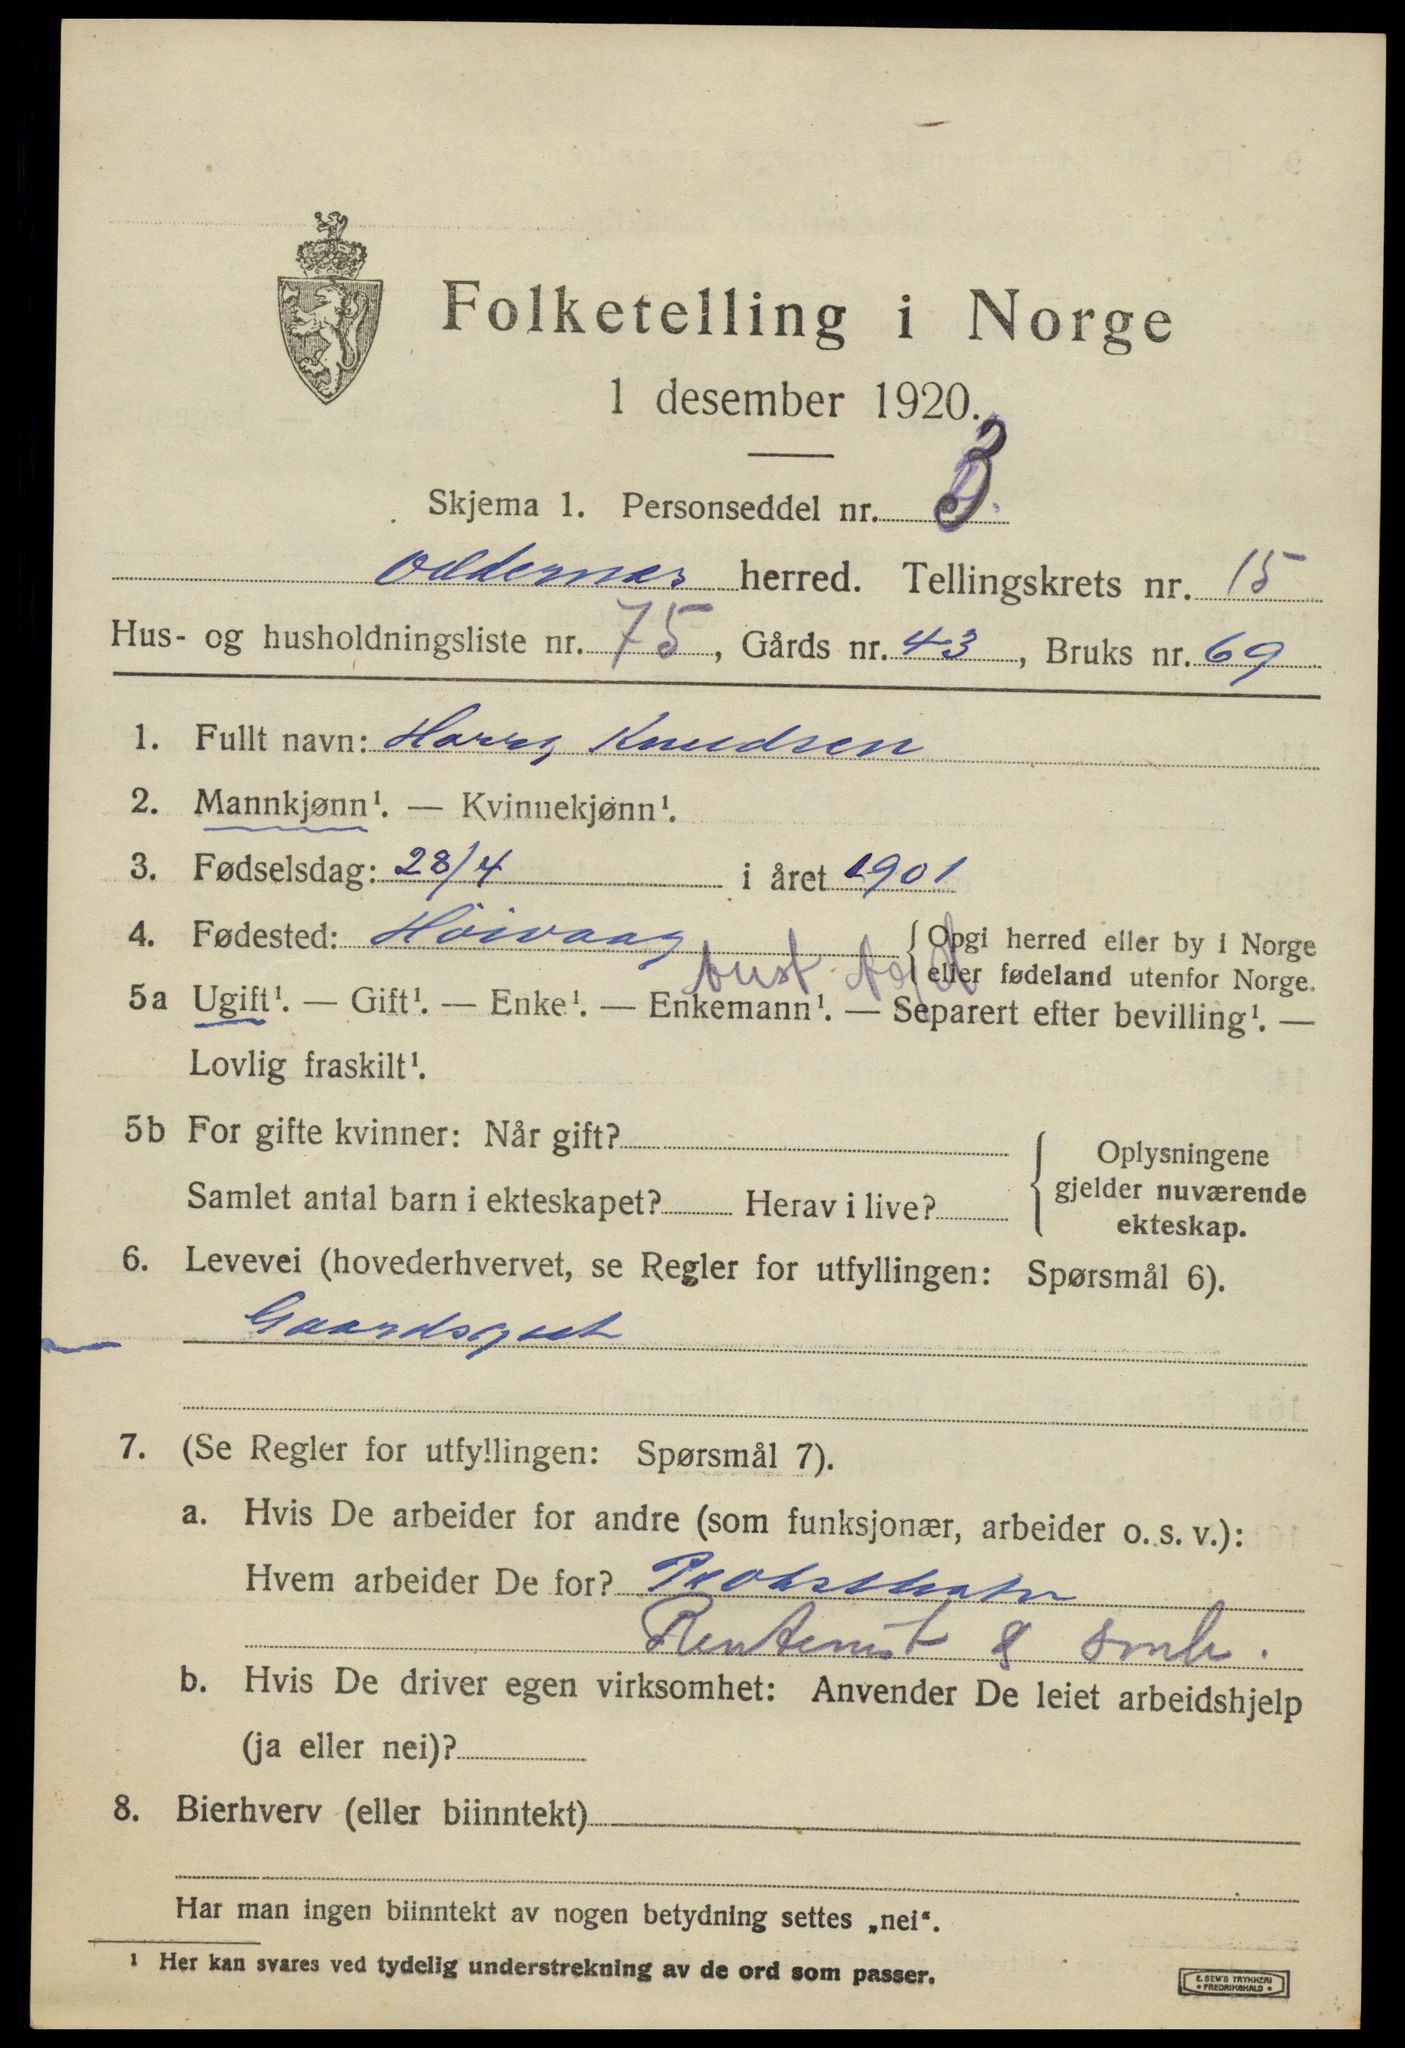 Folketelling i Norge
1 desember 1920.
Skjema 1. Personseddel nr. 3
Oddernes herred. Tellingskrets nr. 15
Hus- og husholdningsliste nr. 75, Gårds nr. 43, Bruks nr. 69
1. Fullt navn: Harry Knudsen
2. Mannkjønn¹. — Kvinnekjønn¹.
3. Fødselsdag: 28/4 i året 1901
4. Fødested: Höivaag { Opgi herred eller by i Norge
{ eller fødeland utenfor Norge.
Aust Agd
5a Ugift¹. — Gift¹. — Enke¹. — Enkemann¹. — Separert efter bevilling¹. —
Lovlig fraskilt¹.
5b For gifte kvinner: Når gift?
Samlet antal barn i ekteskapet? Herav i live?
{ Oplysningene
gjelder nuværende
ekteskap.
6. Levevei (hovederhvervet, se Regler for utfyllingen: Spørsmål 6).
Gaardsgut
7. (Se Regler for utfyllingen: Spørsmål 7).
a. Hvis De arbeider for andre (som funksjonær, arbeider o. s. v.):
Hvem arbeider De for?
Rentenist & smbr.
b. Hvis De driver egen virksomhet: Anvender De leiet arbeidshjelp
(ja eller nei)?
8. Bierhverv (eller biinntekt)
Har man ingen biinntekt av nogen betydning settes „nei“.
¹ Her kan svares ved tydelig understrekning av de ord som passer.
E. SEM'S TRYKKERI
• FREDRIKSHALD •